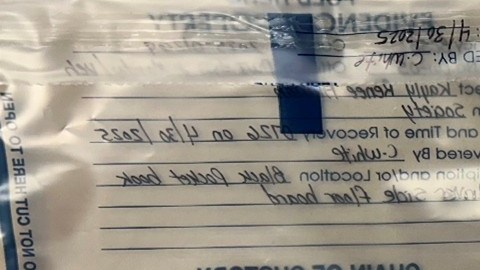 EVIDENCE
PROPERTY
: 4/30/2025
ED BY: C. White
ect Kayly Renee
n Society
and Time of Recovery on 4/30/2025
vered By C. White
iption and/or Location Black Pocket book
Side Floor board
CHAIN OF CUSTODY
O NOT CUT HERE TO OPEN